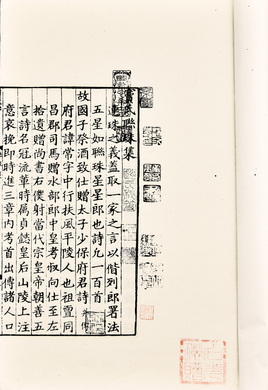 竇氏聯珠集
連珠之義蓋取一家之言以偕列郎署法
五星如聯珠星星郎也詩凡一百首
故國子祭酒致仕贈太子少保府君詩
府君諱常字中行扶風平陵人也祖亶同
昌郡司馬贈水部郎中皇考叔向仕至左
拾遺贈尚書右僕射當代宗皇帝朝善五
言詩名冠流輩時屬貞懿皇后山陵上注
意哀挽即時進三章內考首出傳諸人口